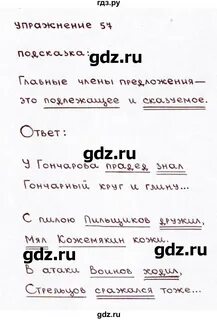 упражнение 57
gdz.ru
подсказка:
gdz.ru
Главные члены предложения—
это подлежащее и сказуемое.
gdz.ru
Ответ:
gdz.ru
У Гончарова прадед знал
Гончарный круг и глину...
gdz.ru
С пилою Пильщиков дружил,
Мял Кожемякин кожи.
gdz.ru
В атаки Воинов ходил,
Стрельцов сражался тоже...
gdz.ru